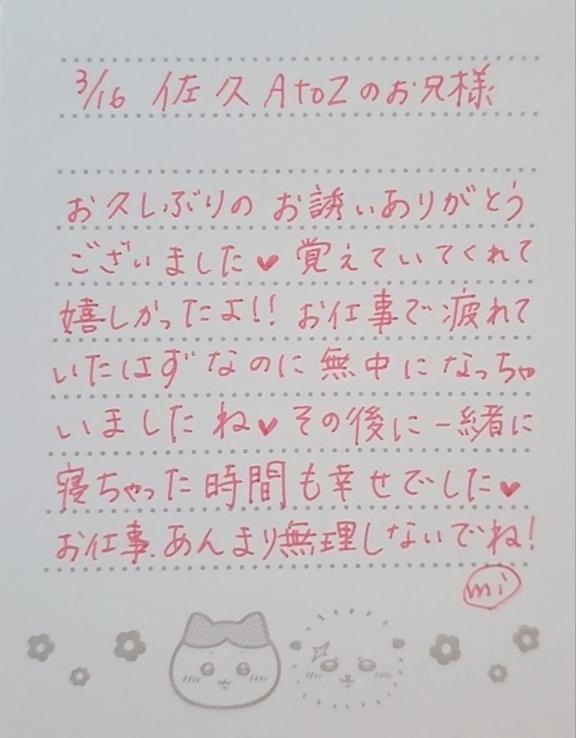 3/16 佐久AtoZのお兄様
お久しぶりのお誘いありがとう
ございました♥覚えていてくれて
嬉しかったよ!!お仕事で疲れて
いたはずなのに無中になっちゃ
いましたね♥その後に一緒に
寝ちゃった時間も幸せでした♥
お仕事.あんまり無理しないでね!
mi